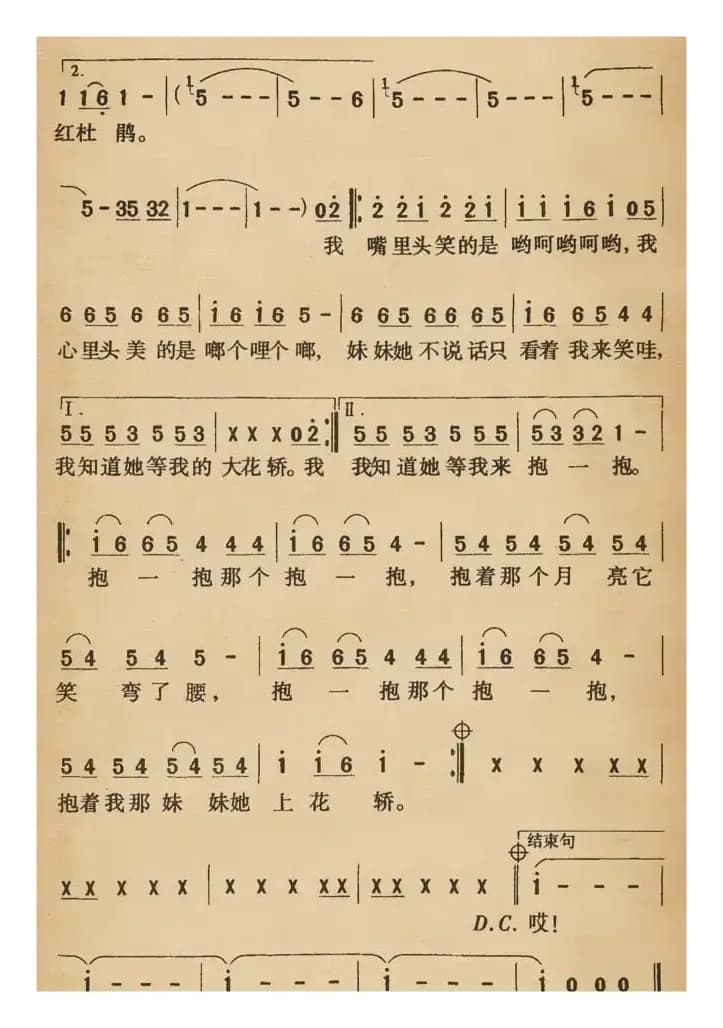 2.
1 1 6 1 - | ( 1 5 - - - | 5 - - 6 | 1 5 - - - | 5 - - - | 1 5 - - - |
红杜 鹃。
5 - 35 32 | 1 - - - | 1 - - ) 02̇ ‖: 2̇ 2̇1̇ 2̇ 2̇1̇ | 1̇ 1̇ 1̇ 6 1̇ 05 |
我 嘴里头笑的是 哟呵哟呵哟, 我
6 65 6 65 | 1̇6 1̇6 5 - | 6 65 66 65 | 1̇6 65 4 4 |
心里头 美 的是 啷个哩个 啷, 妹 妹她 不说 话只 看着 我来笑哇,
I. II.
55 53 5 53 | X X X 02̇ :‖ 55 53 5 55 | 53 32 1 - |
我知道她等我的 大花轿。我 我知道她等我来 抱 一 抱。
‖: 1̇6 65 4 44 | 1̇6 65 4 - | 54 54 54 54 |
抱 一 抱那个 抱 一 抱, 抱着那个月 亮它
54 54 5 - | 1̇6 65 4 44 | 1̇6 65 4 - |
笑 弯了 腰, 抱 一 抱那个 抱 一 抱,
54 54 54 54 | 1̇ 1̇6 1̇ - :‖ X X X XX |
抱着我那 妹 妹她 上 花 轿。
结束句
XX X X X | X X X XX | XX X X X ‖ 1̇ - - - |
D.C. 哎!
1̇ - - - | 1̇ - - - | 1̇ - - - | 1̇ 0 0 0 ‖